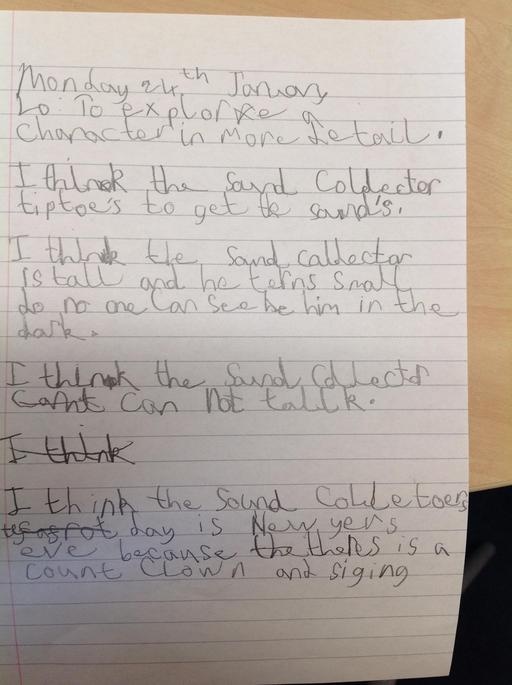 Monday 24th January
Lo: To explorxe a
character in more detail.
I thinok the Sound Coldector
tiptoe's to get te sound's.
I think the Sound callector
is tall and he terns small
do no one Can See be him in the
dark.
I think the Sound Collector
Can't Can Not tallk.
I think
I think the Sound Colletoers
day is New yers
eve because the theres is a
count Clown and siging